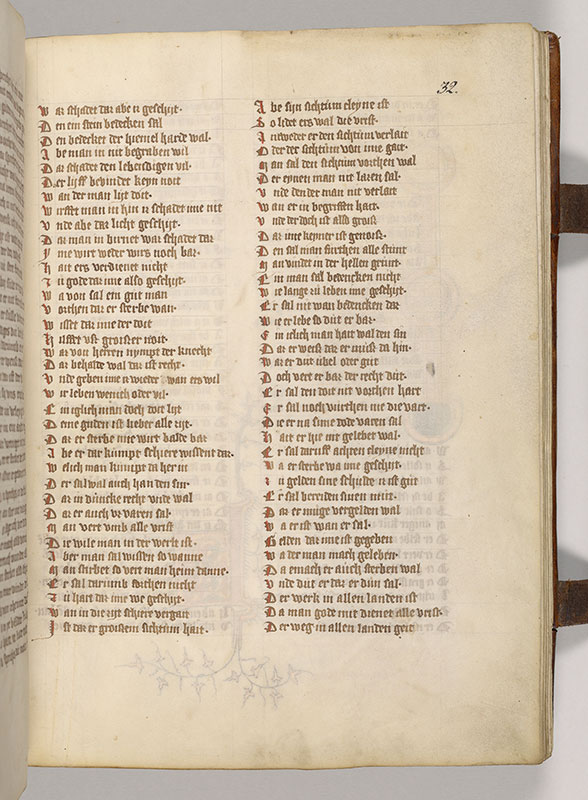 32.
War schadet daz abe er geschyt.
Den em stein bedecken sal
Den bedecket der hiemel harde wal.
Abe man in nit begraben wil
Daz schadet den lebendigen vil.
Der lyff bevindet keyn noit
Wan der man lyt doit.
Wirfft man in hin iz schadet ime nit
Vnde abe daz licht geschyt.
Daz man in burnet waz schadet daz
Yme wirt weder wirs noch baz.
Hait ers verdienet nicht
Zu gode daz ime also geschyt.
Wa von sal ein gut man
Vorthen daz er sterbe dan.
Wisset daz ime der doit
Hilfft vsz groisser noit.
War von herren nympt der knecht
Daz behalde wal daz ist recht.
Vnde geben ime n wieder wan ers wil
Wir leben wenich oder vil.
Ein iglich man doch doit lyt
Deme guden ist lieber alle zyt.
Daz er sterbe ime wirt balde baz
Abe er daz kumpt schiere wissent daz.
Welich man kumpt da her in
Der sal wal auch han den sin.
Daz in duncke recht vnde wal
Daz er auch vz varen sal.
Man vert vmb alle vrist
Die wile man in der werlt ist.
Aber man sal wissen so wanne
Man stirbet so vert man heim danne.
Er sal darumb forchten nicht
Zu hart daz ime we geschyt.
Wan in die zyt schiere vergait
Ist daz er groissem sichtum hait.
Abe syn sichtum cleyne ist
So lidet ers wal die vrist.
Intweder er den sichtum verlait
Oder der sichtum von ime gait.
Man sal den sichtum vorthen wal
Der eynen man nit lazen sal.
Vnde den der man nit verlait
Wan er in begriffen hait.
Vnde der doch ist also grois
Daz ime keyner ist genoisz.
Den sal man furchten alle stunt
Man vindet in der hellen grunt.
Ein man sal bedencken nicht
Wie lange zu leben ime geschyt.
Er sal nit wan bedencken daz
Wie er lebe so dut er baz.
Ein iclich man hait wal den sin
Daz er weisz daz er muisz da hin.
Waz er dut vbel oder gut
Doch vert er baz der recht dut.
Er sal den doit nit vorthen hart
Er sal noch vurthen me die vart.
Die er na sime dode varen sal
Hait er hie nit gelebet wal.
Er sal daruff achten cleyne nicht
Wa er sterbe wa ime geschyt.
In gelden sine schulde n ist gut
Er sal bereiden sinen mut.
Daz er muge vergelden wal
Wa er ist wan er sal.
Gelden daz ime ist gegeben
Wa der man mach geleben.
Da emach er auch sterben wal
Vnde dut er daz er dun sal.
Der werk in allen landen ist
Da man gode mit dienet alle vrist.
Der weg in allen landen geit